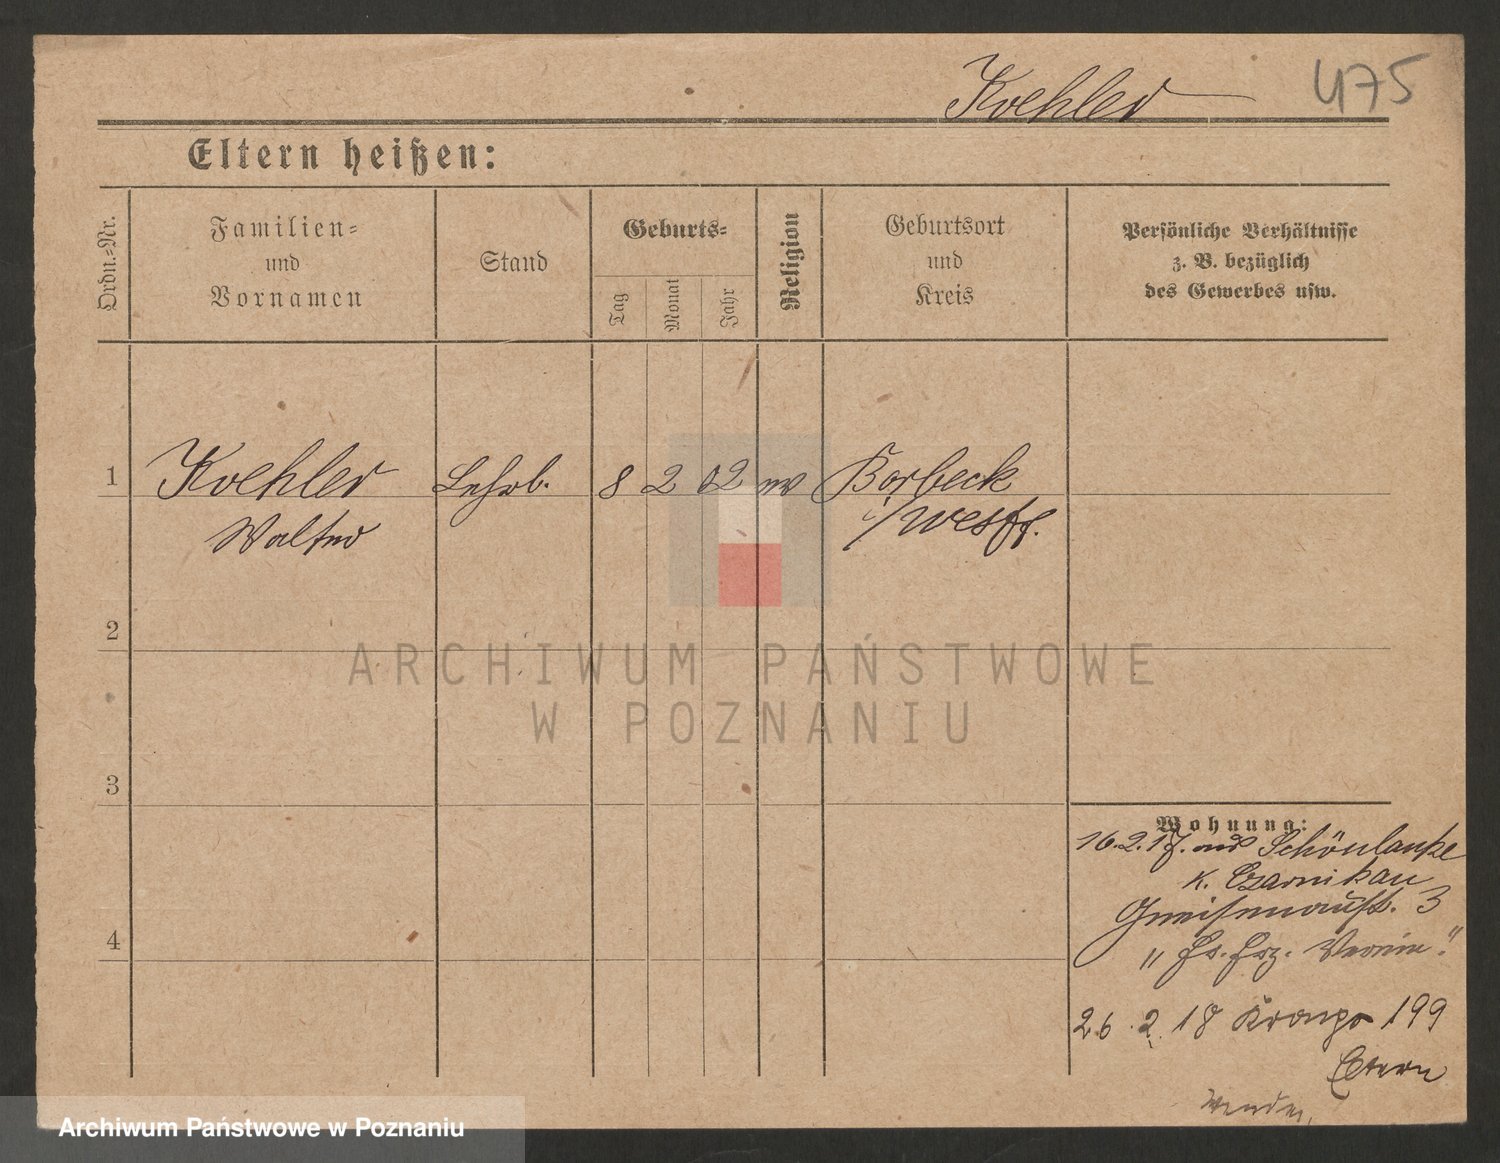 Koehler
475
Eltern heißen:
Ordn.-Nr.
Familien-
und
Vornamen
Stand
Geburts-
Tag
Monat
Jahr
Religion
Geburtsort
und
Kreis
Persönliche Verhältnisse
z. B. bezüglich
des Gewerbes usw.
1
Koehler
Walter
Lehrl.
8
2
02
ev
Borbeck
i/Westf.
2
3
4
Wohnung:
16.2.17. aus Schönlanke
K. Czarnikau
Gneisenaustr. 3
Verein"
26.2.18 199
Eltern
Wenden
ARCHIWUM PAŃSTWOWE
W POZNANIU
Archiwum Państwowe w Poznaniu